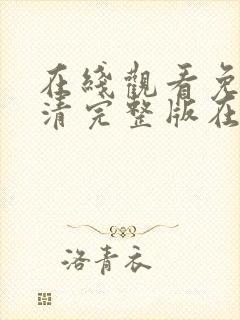 在綫觀看免
清完整版在
洛青衣